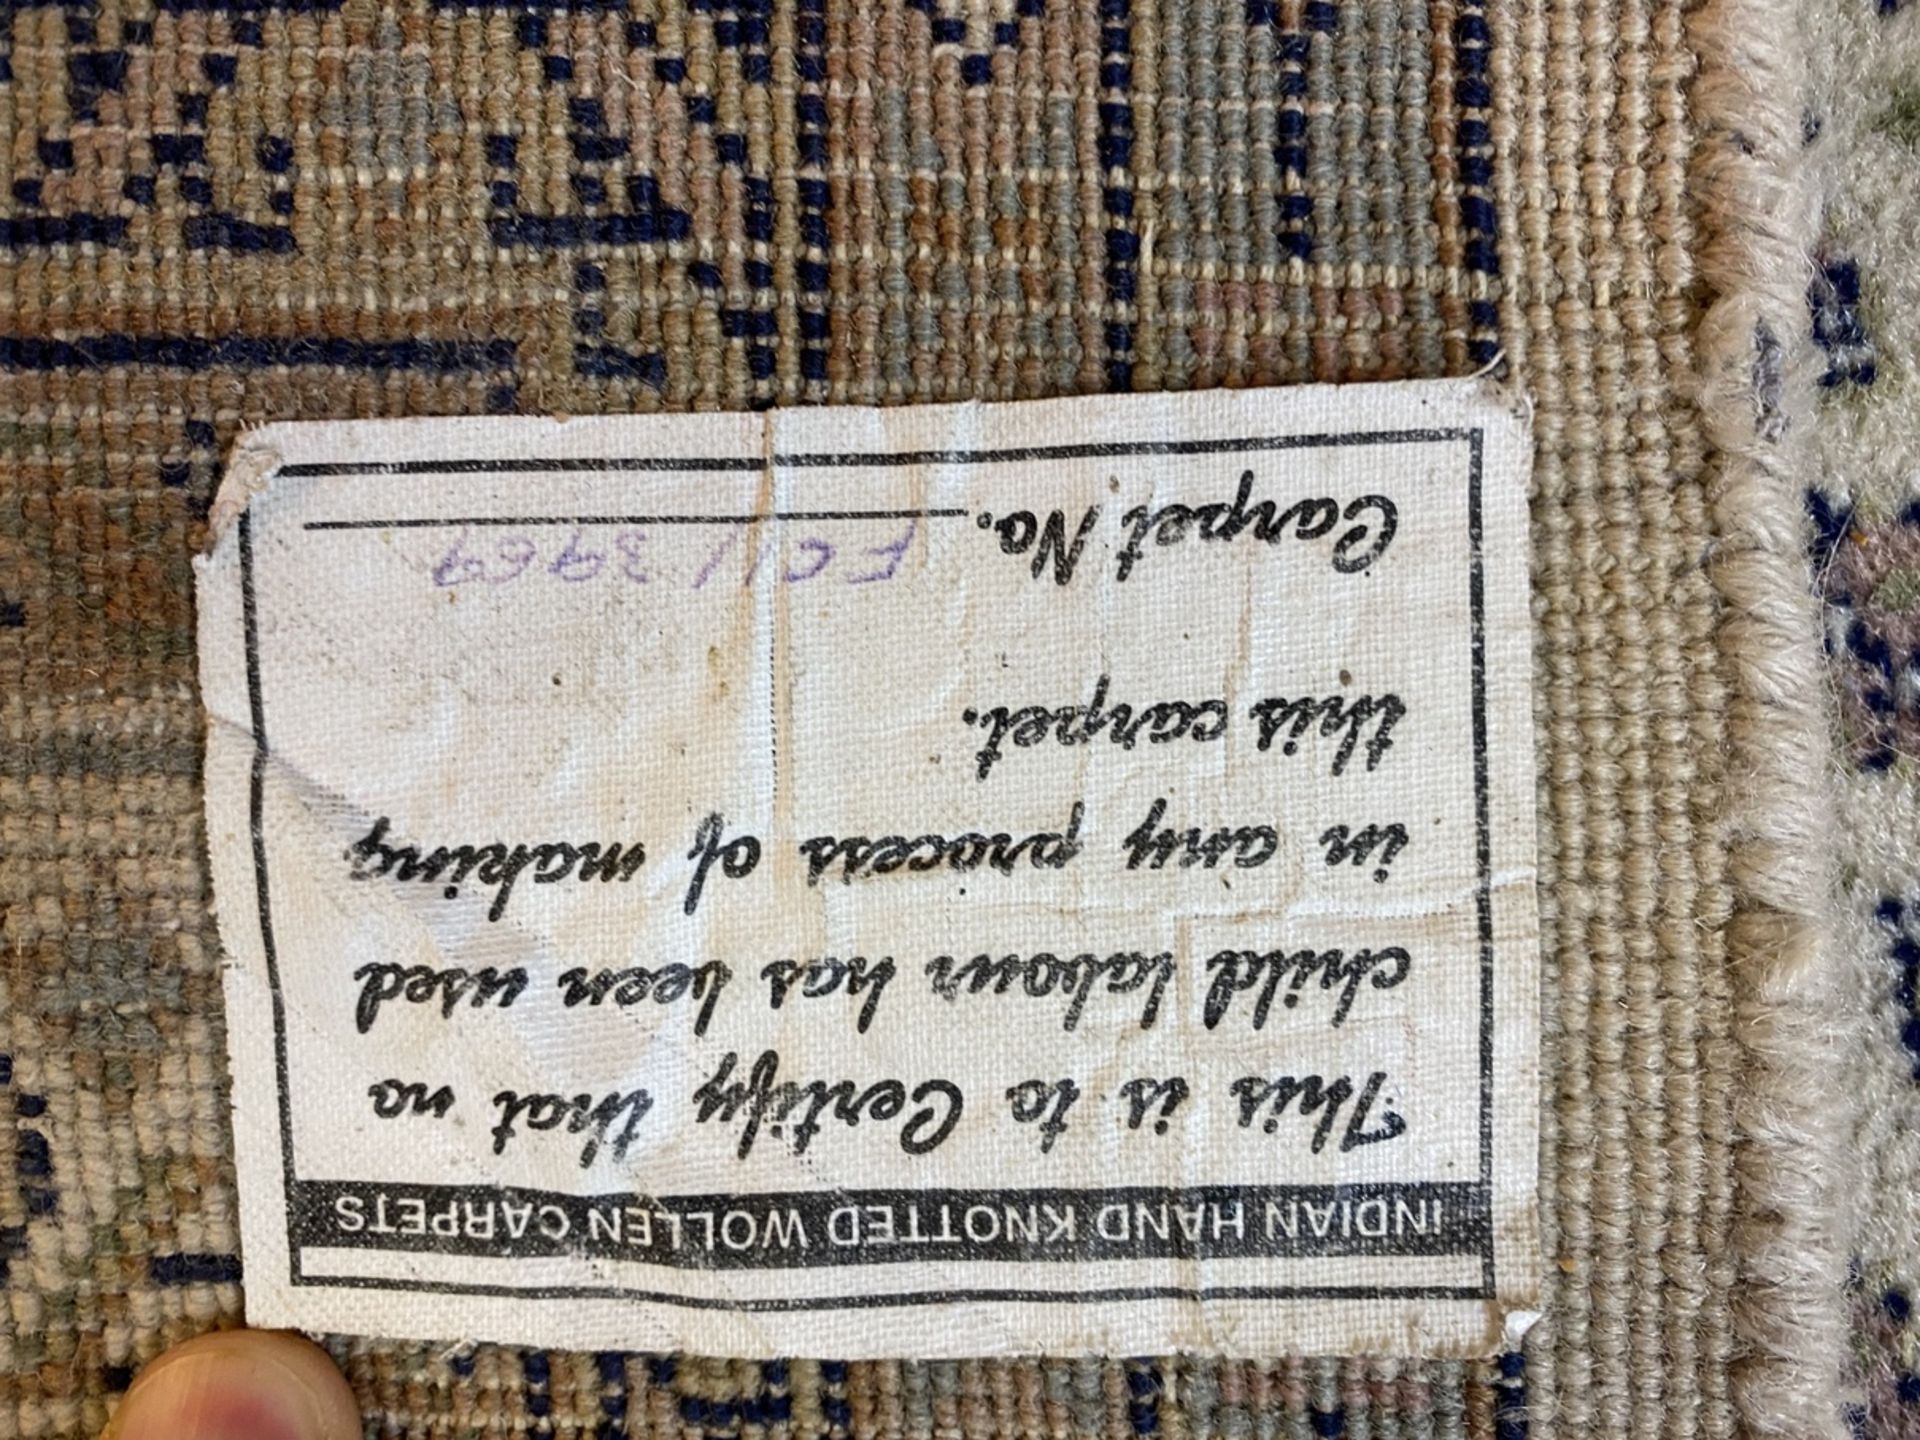 INDIAN HAND KNOTTED WOLLEN CARPETS
This is to Certify that no
child labour has been used
in any process of making
this carpet.
Carpet No. FCI/ 3969